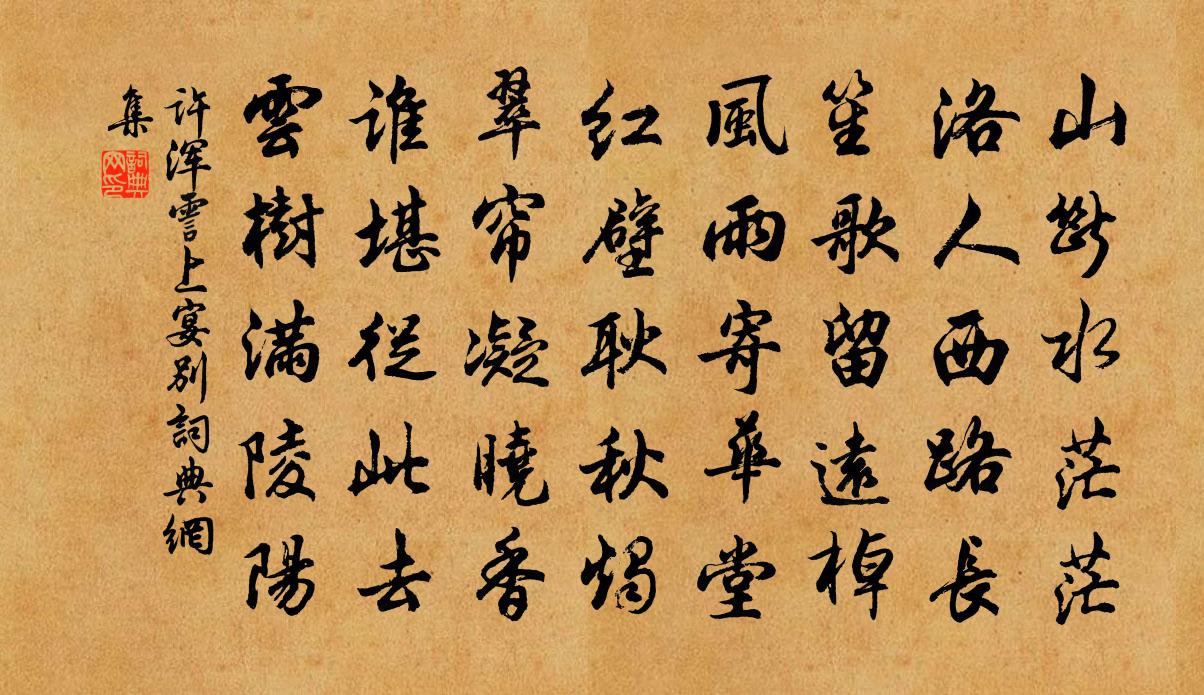 山斷水茫茫
洛人西路長
笙歌留遠棹
風雨寄華堂
红壁耿秋燭
翠帘凝曉香
誰堪從此去
雲樹滿陵陽
许渾霅上宴别詞典網
集
詞典网印